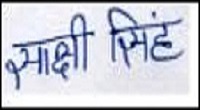 साक्षी सिंह